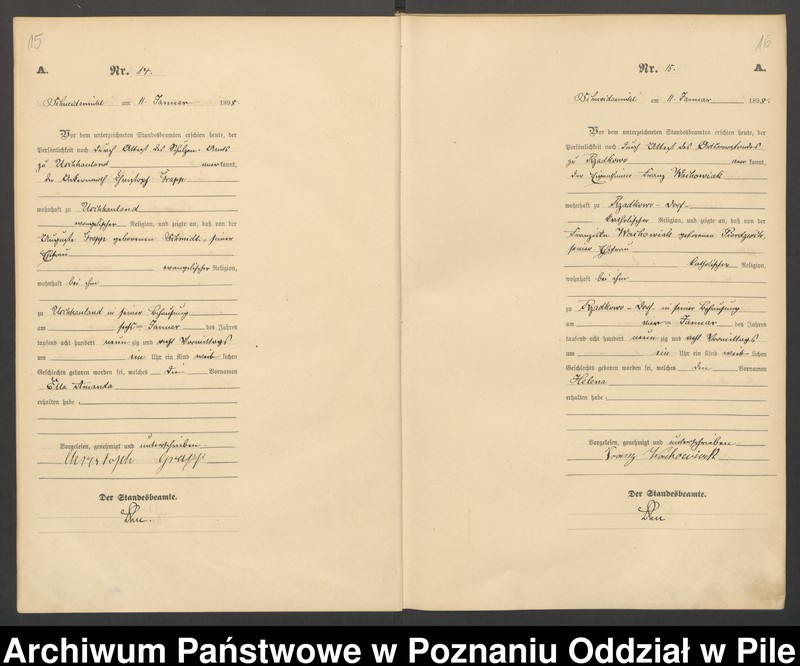 15
A. Nr. 14.
Schneidemühl am 11. Januar 1898.
Vor dem unterzeichneten Standesbeamten erschien heute, der
Persönlichkeit nach durch Attest des Schulzen-Amts
zu Uschhauland anerkannt,
der
wohnhaft zu Uschhauland
evangelischer Religion, und zeigte an, daß von der
Auguste geborenen Schmidt, seiner
Ehefrau
evangelischer Religion,
wohnhaft bei ihm
zu Uschhauland in seiner Behausung
am sechs Januar des Jahres
tausend acht hundert neun zig und acht Vormittags
um ein Uhr ein Kind weib lichen
Geschlechts geboren worden sei, welches die Vornamen
Ella Amanda
erhalten habe.
Vorgelesen, genehmigt und unterschrieben.
Christoph Grapp
Der Standesbeamte.
16
Nr. 15. A.
Schneidemühl am 11. Januar 1898.
Vor dem unterzeichneten Standesbeamten erschien heute, der
Persönlichkeit nach durch Attest des Ortsvorstandes
zu Rzadkowo anerkannt,
der Eigenthümer Franz
wohnhaft zu Rzadkowo-Dorf
katholischer Religion, und zeigte an, daß von der
geborenen
seiner Ehefrau
katholischer Religion,
wohnhaft bei ihm
zu Rzadkowo-Dorf, in seiner Behausung
am vier Januar des Jahres
tausend acht hundert neun zig und acht Vormittags
um ein Uhr ein Kind weib lichen
Geschlechts geboren worden sei, welches den Vornamen
Helena
erhalten habe.
Vorgelesen, genehmigt und unterschrieben.
Franz
Der Standesbeamte.
Archiwum Państwowe w Poznaniu Oddział w Pile